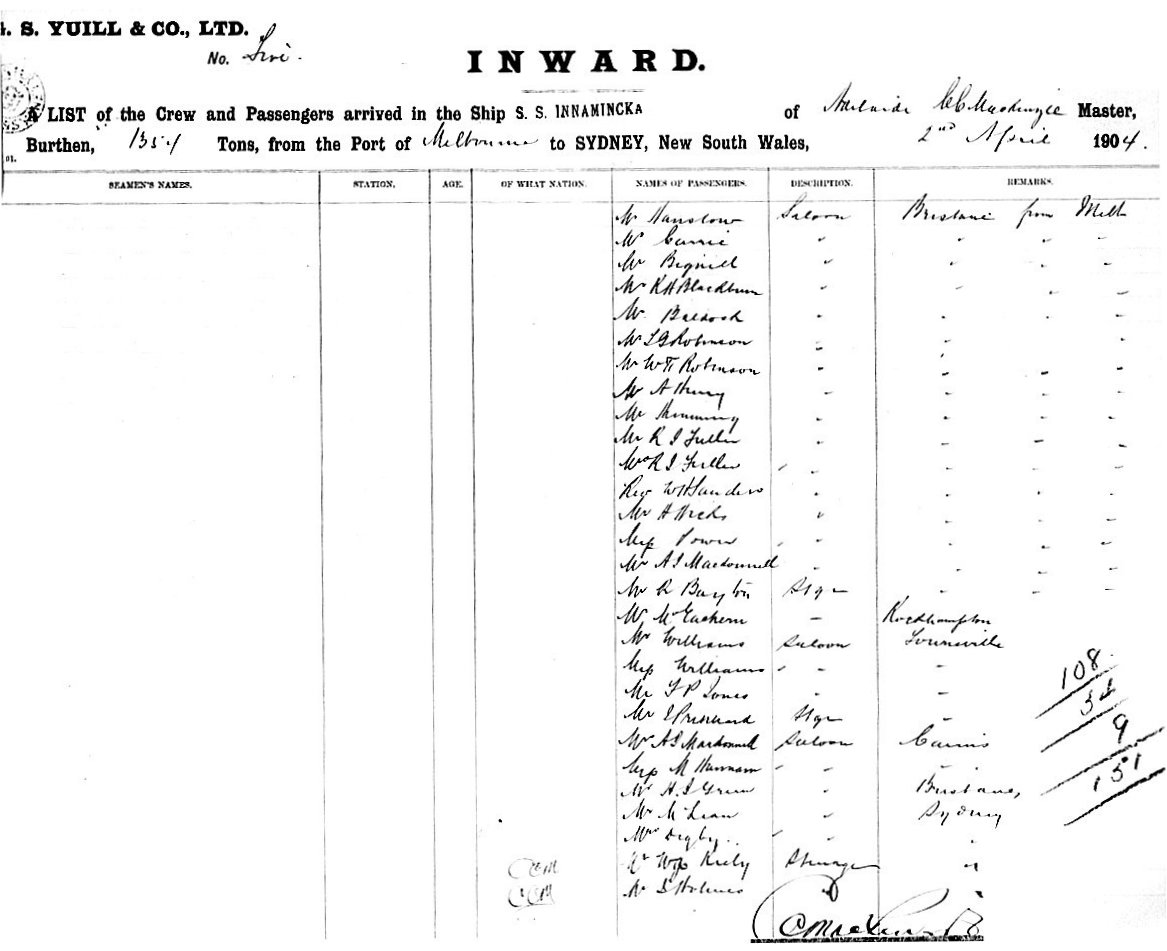 . S. YUILL & CO., LTD.
No. Five.
INWARD.
A LIST of the Crew and Passengers arrived in the Ship S. S. INNAMINCKA of Adelaide CC Mackenzie Master,
Burthen, Tons, from the Port of Melbourne to SYDNEY, New South Wales, 2nd April 1904.
SEAMEN'S NAMES. STATION. AGE. OF WHAT NATION. NAMES OF PASSENGERS. DESCRIPTION. REMARKS.
Mr Hanslow Saloon Brisbane from Melb
Mr Currie " " " "
Mr Bignell " " " "
Mr K H Blackburn " " " "
Mr " " " "
Mr Robinson " " " "
Mr Robinson " " " "
Mr A Henry " " " "
Mr " " " "
Mr R J Fuller " " " "
Mrs R J Fuller " " " "
Rev W H Sanders " " " "
Mr H Hicks " " " "
Miss Power " " " "
Mr A J Macdonnell " " " "
Mr R Bayton Stge " " "
Mr McEachern " Rockhampton
Mr Williams Saloon Townsville
Miss Williams " "
Mr F P Jones " "
Mr Stge "
Mr A J Macdonnell Saloon Cairns
Miss M " "
Mr H J Green " Brisbane,
Mr McLean " Sydney
Mrs Digby " "
Kiely Steerage "
Mr Holmes " "
108
34
9
151